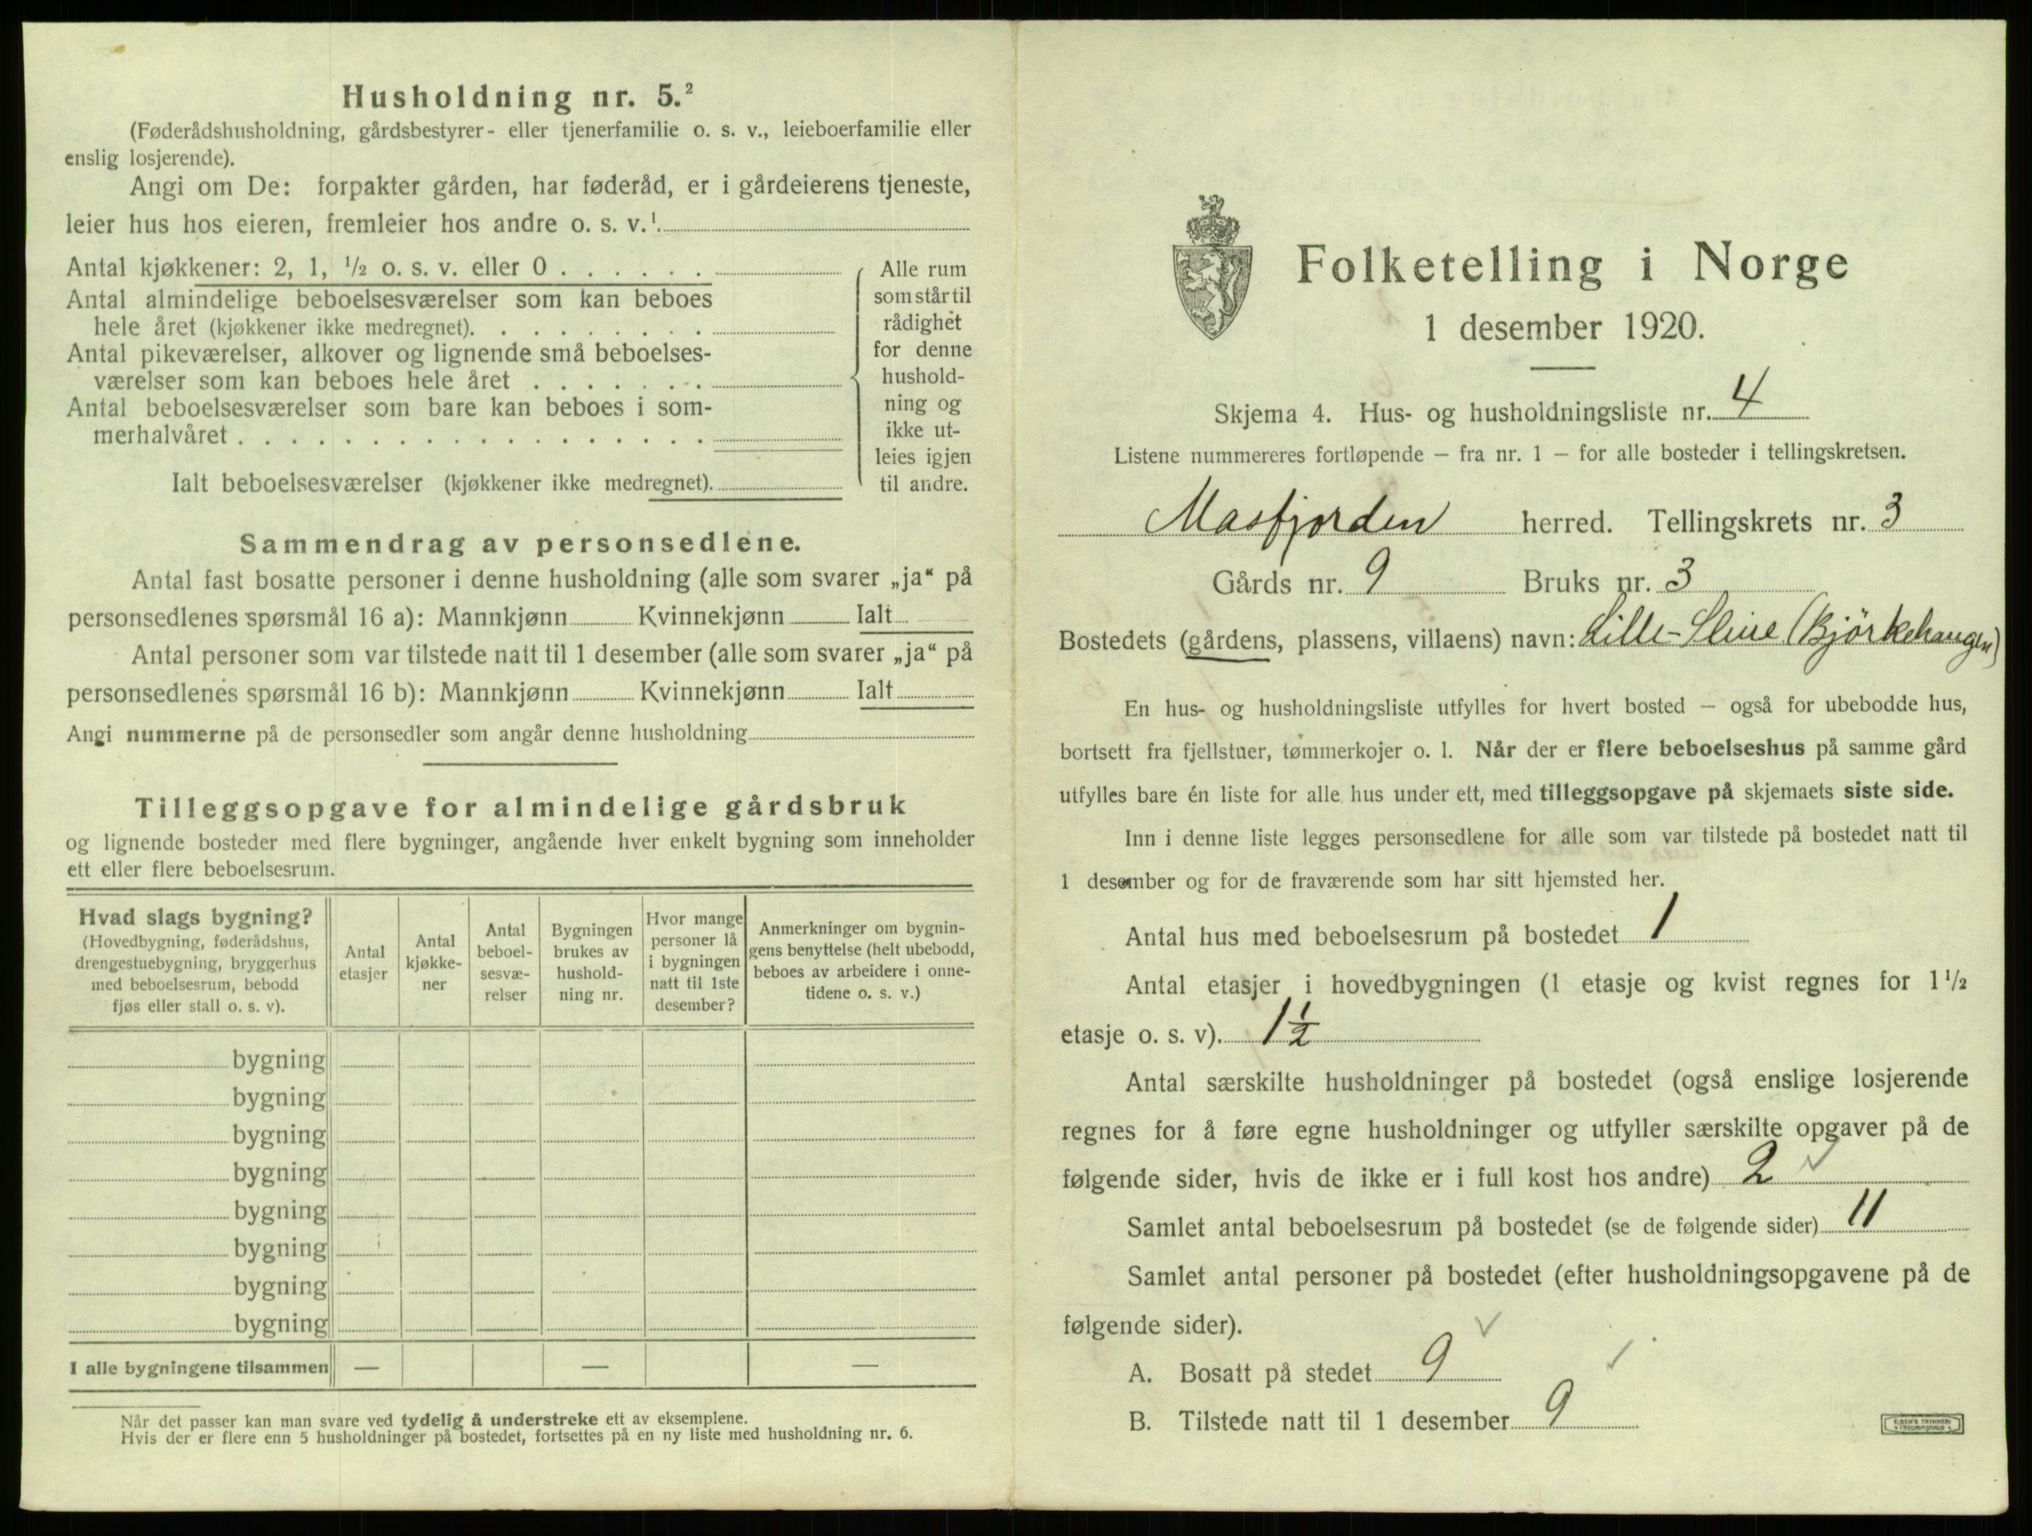 Husholdning nr. 5.²
(Føderådshusholdning, gårdsbestyrer- eller tjenerfamilie o. s. v., leieboerfamilie eller
enslig losjerende).
Angi om De: forpakter gården, har føderåd, er i gårdeierens tjeneste,
leier hus hos eieren, fremleier hos andre o. s. v.¹
Antal kjøkkener: 2, 1, ½ o. s. v. eller 0 . . . . . .
Antal almindelige beboelsesværelser som kan beboes
hele året (kjøkkener ikke medregnet). . . . . . . . .
Antal pikeværelser, alkover og lignende små beboelses-
værelser som kan beboes hele året . . . . . . .
Antal beboelsesværelser som bare kan beboes i som-
merhalvåret . . . . . . . . . . . . . . . . . .
Ialt beboelsesværelser (kjøkkener ikke medregnet).
Alle rum
som står til
rådighet
for denne
hushold-
ning og
ikke ut-
leies igjen
til andre.
Sammendrag av personsedlene.
Antal fast bosatte personer i denne husholdning (alle som svarer „ja“ på
personsedlenes spørsmål 16 a): Mannkjønn Kvinnekjønn Ialt
Antal personer som var tilstede natt til 1 desember (alle som svarer „ja“ på
personsedlenes spørsmål 16 b): Mannkjønn Kvinnekjønn Ialt
Angi nummerne på de personsedler som angår denne husholdning
Tilleggsopgave for almindelige gårdsbruk
og lignende bosteder med flere bygninger, angående hver enkelt bygning som inneholder
ett eller flere beboelsesrum.
Hvad slags bygning?
(Hovedbygning, føderådshus,
drengestuebygning, bryggerhus
med beboelsesrum, bebodd
fjøs eller stall o. s. v).
Antal
etasjer
Antal
kjøkke-
ner
Antal
beboel-
sesvæ-
relser
Bygningen
brukes av
hushold-
ning nr.
Hvor mange
personer lå
i bygningen
natt til 1ste
desember?
Anmerkninger om bygnin-
gens benyttelse (helt ubebodd,
beboes av arbeidere i onne-
tidene o. s. v.)
bygning
bygning
bygning
bygning
bygning
bygning
bygning
bygning
I alle bygningene tilsammen — — —
Når det passer kan man svare ved tydelig å understreke ett av eksemplene.
Hvis der er flere enn 5 husholdninger på bostedet, fortsettes på en ny liste med husholdning nr. 6.
Folketelling i Norge
1 desember 1920.
Skjema 4. Hus- og husholdningsliste nr. 4
Listene nummereres fortløpende – fra nr. 1 – for alle bosteder i tellingskretsen.
Masfjorden herred. Tellingskrets nr. 3
Gårds nr. 9 Bruks nr. 3
Bostedets (gårdens, plassens, villaens) navn: Lille-Sleire (Bjørkehaugen)
En hus- og husholdningsliste utfylles for hvert bosted – også for ubebodde hus,
bortsett fra fjellstuer, tømmerkojer o. l. Når der er flere beboelseshus på samme gård
utfylles bare én liste for alle hus under ett, med tilleggsopgave på skjemaets siste side.
Inn i denne liste legges personsedlene for alle som var tilstede på bostedet natt til
1 desember og for de fraværende som har sitt hjemsted her.
Antal hus med beboelsesrum på bostedet 1
Antal etasjer i hovedbygningen (1 etasje og kvist regnes for 1½
etasje o. s. v). 1½
Antal særskilte husholdninger på bostedet (også enslige losjerende
regnes for å føre egne husholdninger og utfyller særskilte opgaver på de
følgende sider, hvis de ikke er i full kost hos andre) 2 ✓
Samlet antal beboelsesrum på bostedet (se de følgende sider) 11
Samlet antal personer på bostedet (efter husholdningsopgavene på de
følgende sider).
A. Bosatt på stedet 9 ✓
B. Tilstede natt til 1 desember 9